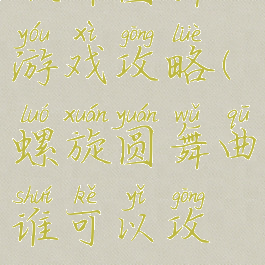 yóu xì gōng lüè
游戏攻略(
luó xuán yuán wǔ qū
螺旋圆舞曲
shuí kě yǐ gōng
谁可以攻